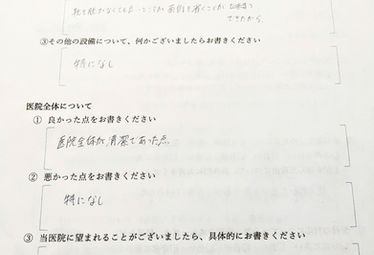 できたから.
③その他の設備について、何かございましたらお書きください
特になし
医院全体について
① 良かった点をお書きください
医院全体が清潔であった点.
② 悪かった点をお書きください
特になし
③ 当医院に望まれることがございましたら、具体的にお書きください